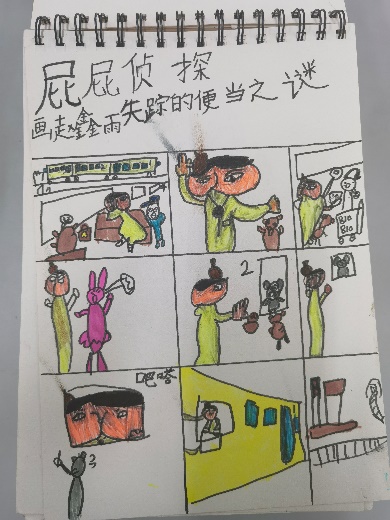 屁屁侦探
画走鑫雨失踪的便当之谜
BIO
BIO
2
吧嗒